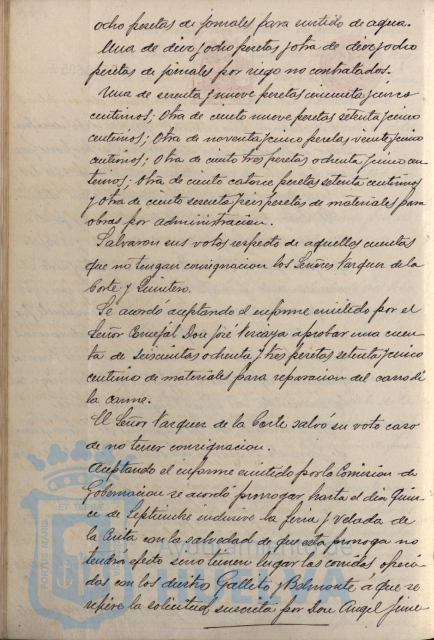 ocho pesetas de jornales para surtido de agua.
Una de diez y ocho pesetas y otra de diez y ocho
pesetas de jornales por riego no contratados.
Una de sesenta y nueve pesetas cincuenta y cinco
centimos; Otra de ciento nueve pesetas setenta y cinco
centimos; Otra de noventa y cinco pesetas veinte y cinco
centimos; Otra de ciento tres pesetas ochenta y cinco cen
timos; Otra de ciento catorce pesetas setenta centimos
y otra de ciento sesenta y seis pesetas de materiales para
obras por administracion.
Salvaron sus votos respecto de aquellas cuentas
que no tengan consignacion los Señores Vazquez de la
Corte y Quintero.
Se acordó aceptando el informe emitido por el
Señor Concejal Don José aprobar una cuen
ta de seiscientas ochenta y tres pesetas setenta y cinco
centimos de materiales para reparacion del carro de
la carne.
El Señor Vazquez de la Corte salvó su voto caso
de no tener consignacion.
Aceptando el informe emitido por la Comision de
Gobernacion se acordó prorrogar hasta el dia Quin
ce de Septiembre inclusive la feria y Velada de
la Cinta con la salvedad de que esta prorroga no
tendrá efecto si no tienen lugar las corridas ofreci
das con los diestros Gallito y Belmonte á que se
refiere la solicitud suscrita por Don Angel Jime
Ayuntamiento de
HUELVA
PORTUS MARIS ET TERRAE